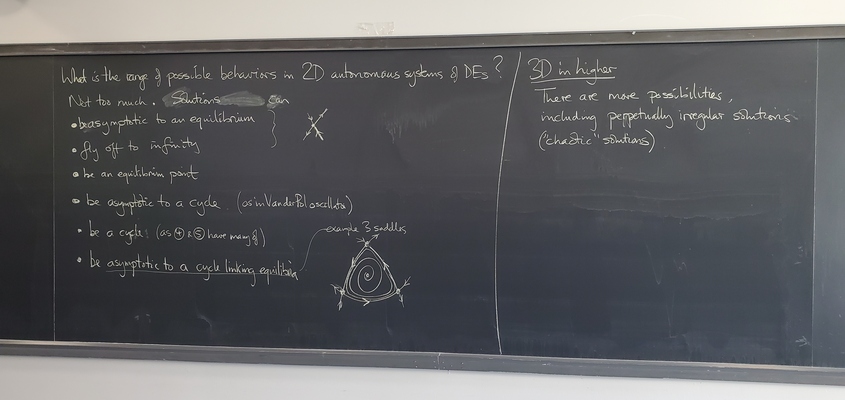 What is the range of possible behaviors in 2D autonomous systems of DEs?
Not too much. Solutions can
• be asymptotic to an equilibrium
• fly off to infinity
• be an equilibrium point
• be asymptotic to a cycle. (as in Van der Pol oscillator)
• be a cycle! (as ④ & ⑤ have many of)
• be asymptotic to a cycle linking equilibria
example 3 saddles
3D in higher
There are more possibilities,
including perpetually irregular solutions
("chaotic" solutions)